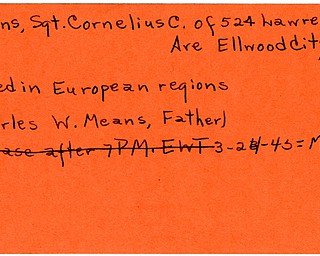 ns, Sgt. Cornelius C. of 524 Lawre
Ave Ellwood City
ed in European regions
rles W. Means, Father)
ease after 7 P.M. EWT 3-24-45 = M